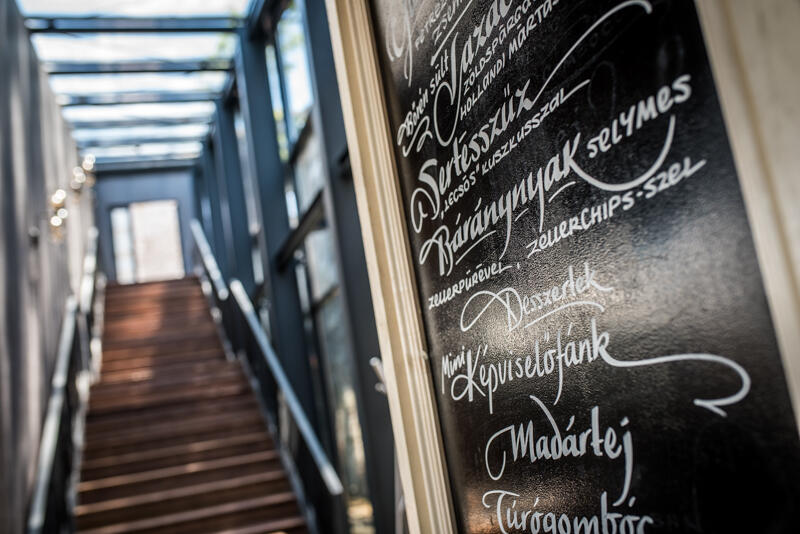 Bőrén sült
ZÖLDSPÁRGA
HOLLANDI MÁRTÁS
Sertésszűz
„LECSÓS” KUSZKUSSZAL
Báránynyak SELYMES
ZELLERPÜRÉVEL, ZELLERCHIPS-SZEL
Desszertek
Mini Képviselőfánk
Madártej
Túrógombóc